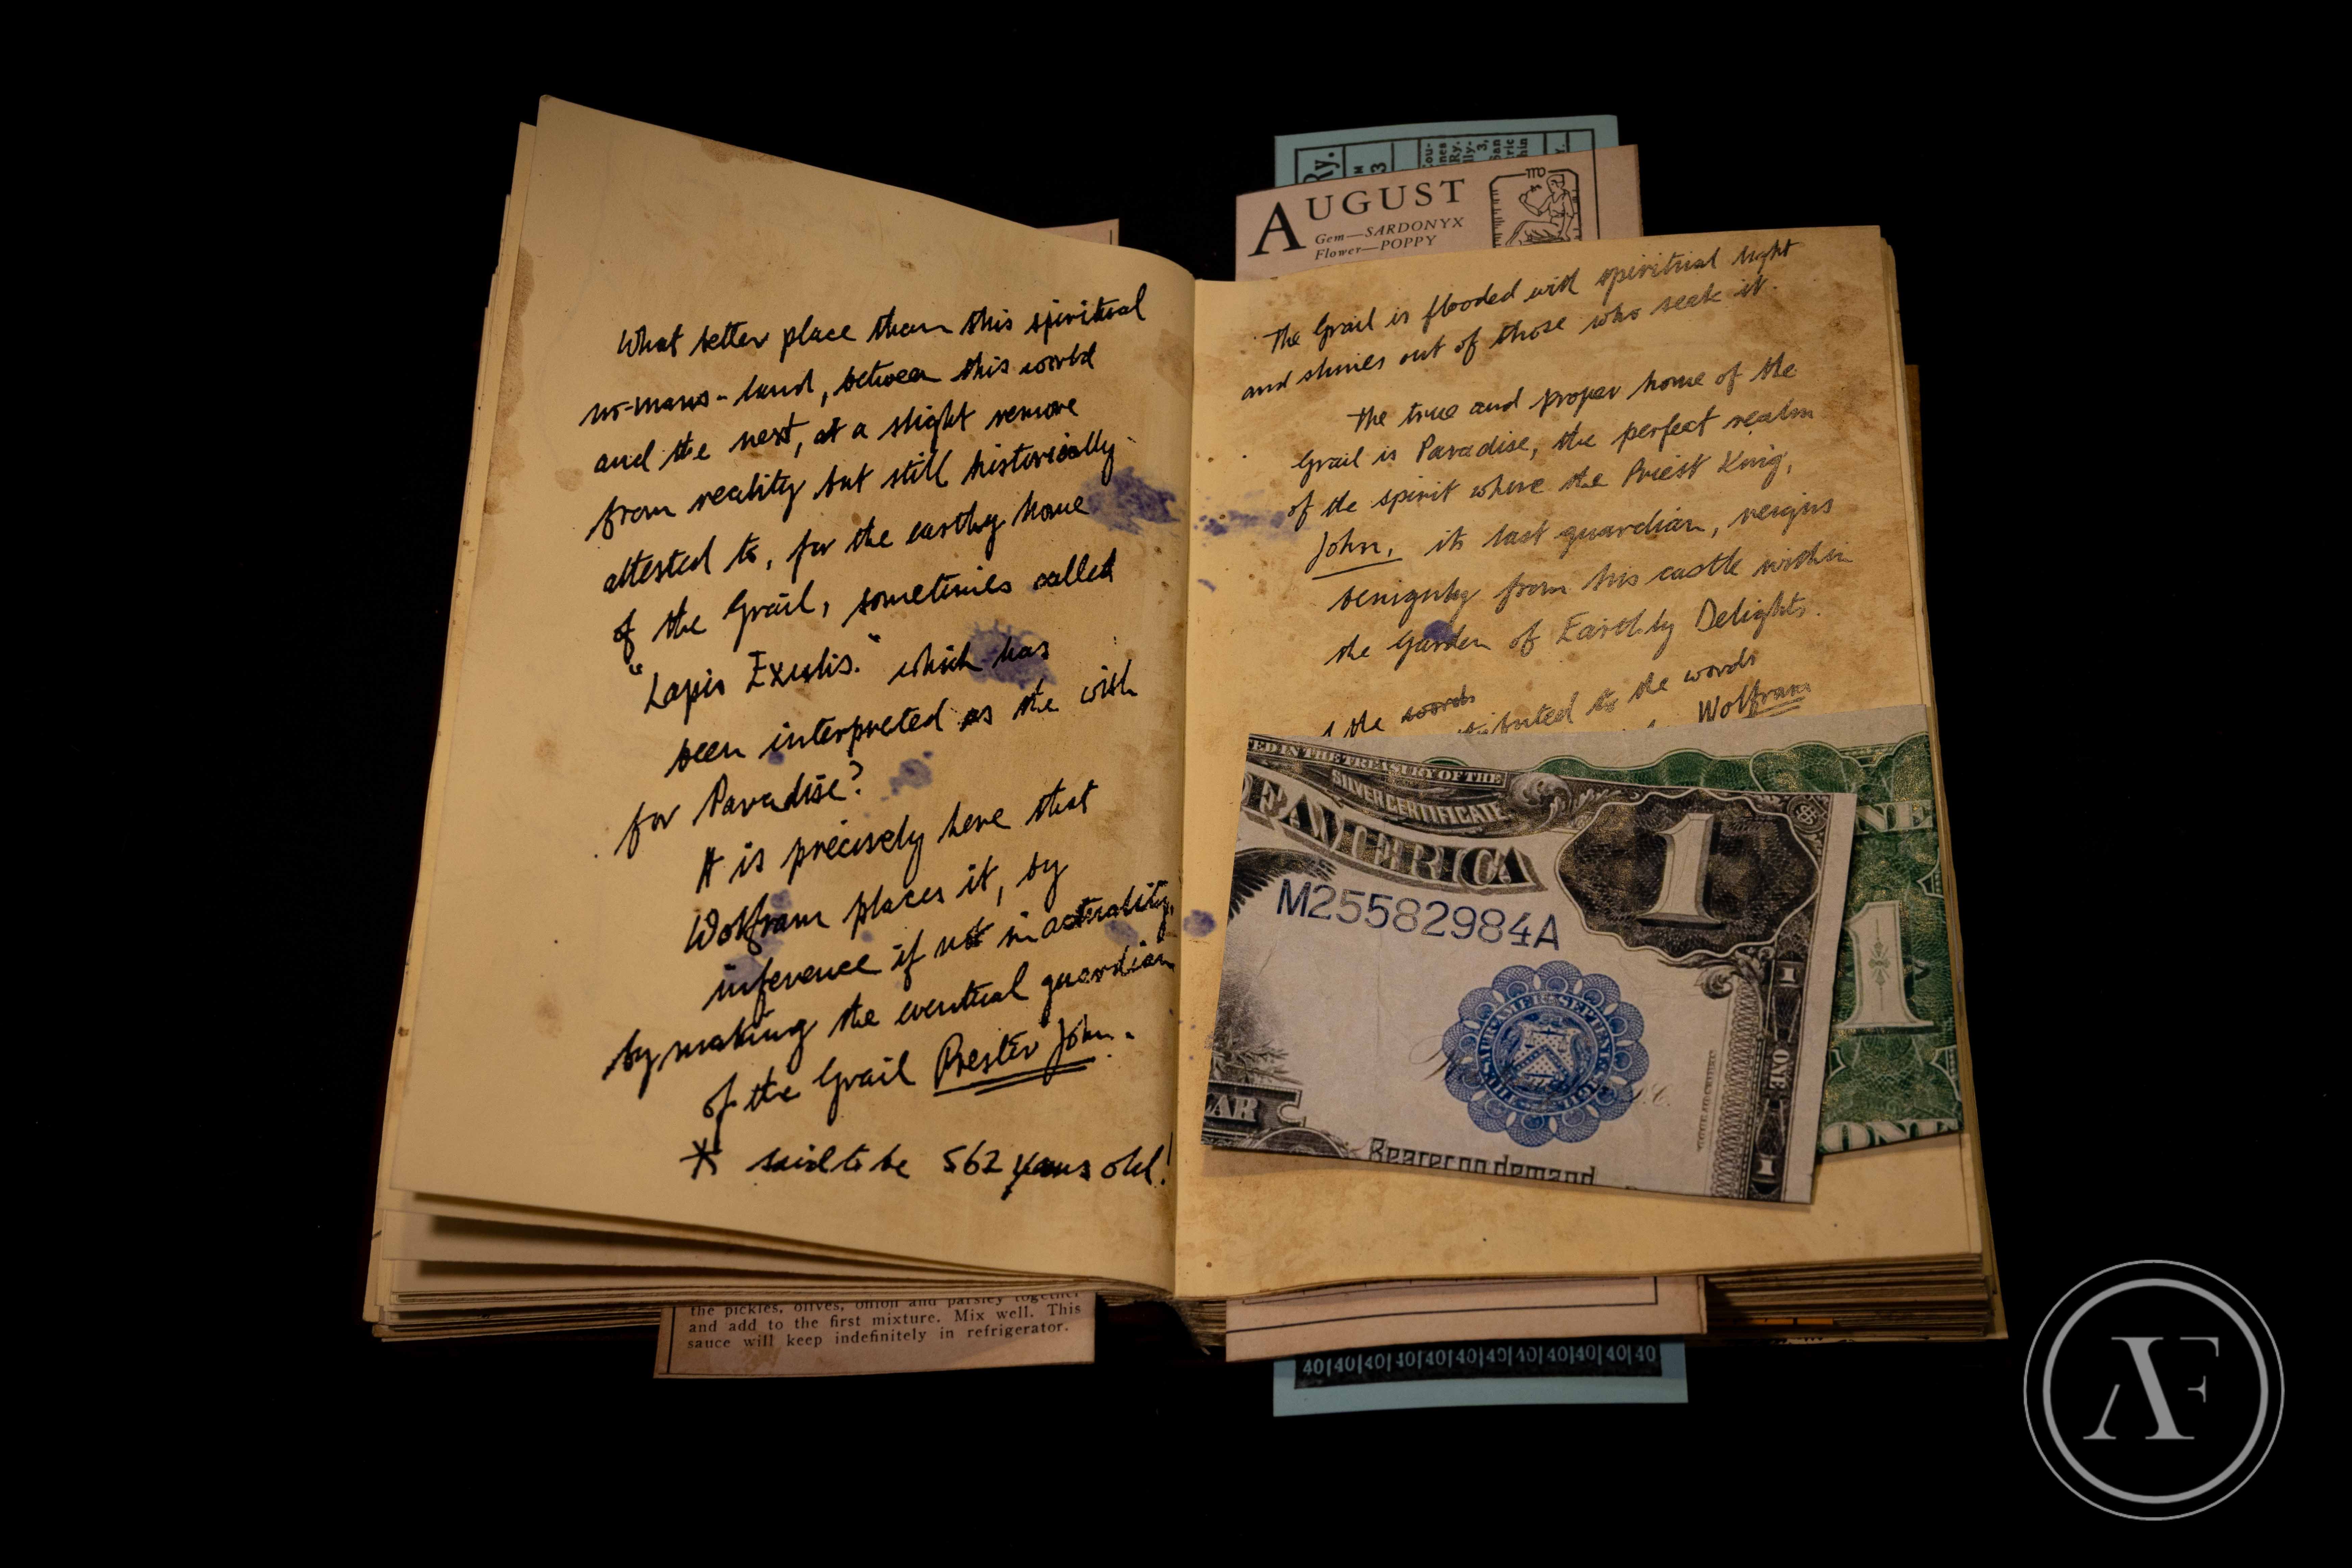 What better place than this spiritual
no-mans-land, between this world
and the next, at a slight remove
from reality but still historically
attested to, for the earthly home
of the Grail, sometimes called
"Lapis Exulis." which has
been interpreted as the wish
for Paradise?
It is precisely here that
Wolfram places it, by
inference if not in actuality,
by making the eventual guardian
of the Grail Prester John.
* said to be 562 years old!
the pickles, olives, onion and parsley together
and add to the first mixture. Mix well. This
sauce will keep indefinitely in refrigerator.
Ry.
3
AUGUST
Gem—SARDONYX
Flower—POPPY
The Grail is flooded with spiritual light
and shines out of those who seek it.
The true and proper home of the
Grail is Paradise, the perfect realm
of the spirit where the Priest King,
John, its last guardian, reigns
benignly from his castle within
the Garden of Earthly Delights.
the words
to the words
Wolfram
IN THE TREASURY OF THE
SILVER CERTIFICATE
OF AMERICA
1
M25582984A
LAR
Bearer on demand
1
ONE
1
ONE
1
ONE
40|40|40|40|40|40|40|40|40|40|40|40
AF